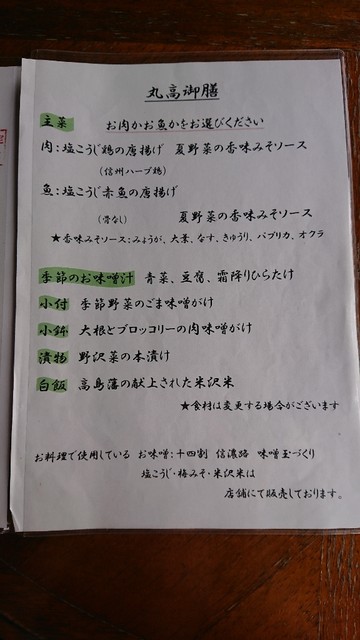 丸高御膳
主菜 お肉かお魚かをお選びください
肉：塩こうじ鶏の唐揚げ 夏野菜の香味みそソース
（信州ハーブ鶏）
魚：塩こうじ赤魚の唐揚げ
（骨なし） 夏野菜の香味みそソース
★香味みそソース：みょうが、大葉、なす、きゅうり、パプリカ、オクラ
季節のお味噌汁 青菜、豆腐、霜降りひらたけ
小付 季節野菜のごま味噌がけ
小鉢 大根とブロッコリーの肉味噌がけ
漬物 野沢菜の本漬け
白飯 高島藩の献上された米沢米
★食材は変更する場合がございます
お料理で使用している お味噌：十四割 信濃路 味噌玉づくり
塩こうじ・梅みそ・米沢米は
店舗にて販売しております。